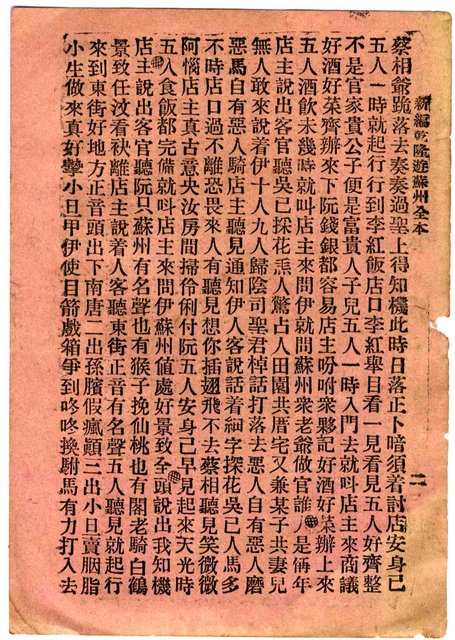 新編乾隆遊蘇州全本
二
蔡相爺跪落去奏奏過聖上得知機此時日落正卜暗須着討店安身己
五人一時就起行行到李紅飯店口李紅舉目看一見看見五人好齊整
不是官家貴公子便是富貴人子兒五人一時入門去就叫店主來商議
好酒好菜齊辦來下阮錢銀都容易店主吩咐衆夥記好酒好菜辦上來
五人酒飲未幾時就叫店主來問伊就問蘇州衆老爺做官誰人是年
店主說出客官聽吳己採花人驚占人田園共厝宅又兼某子共妻兒
無人敢來說着伊十人九人歸陰司聖君悼話打落去惡人自有惡人磨
惡馬自有惡人騎店主聽見通知伊人客說話着細字探花吳已人馬多
不時店口過不離恐畏來人有聽見想你插翅飛不去蔡相聽見笑微微
阿惱店主真古意央汝房間掃伶俐付阮五人安身己早見起來天光時
五人食飯都完備就叫店主來問伊蘇州值處好景致全頭說出我知機
店主說出客官聽阮只蘇州有名聲也有猴子挽仙桃也有閣老騎白鶴
景致任汶看秋離店主說着人客聽東街正音有名聲五人聽見就起行
來到東街好地方正音頭出下南唐二出孫臏假瘋顛三出小旦賣胭脂
小生做來真好攣小旦甲伊使目箭戲箱爭到咚咚換駙馬有力打入去